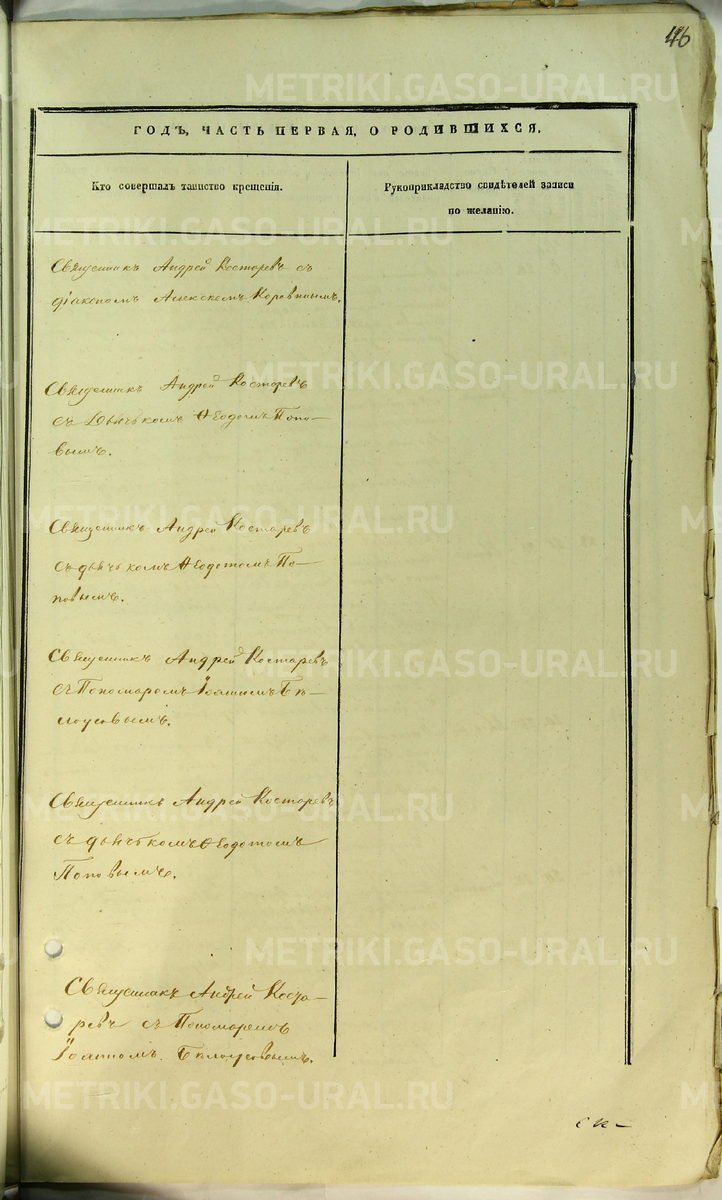 46
METRIKI.GASO-URAL.RU
ГОДЪ, ЧАСТЬ ПЕРВАЯ, О РОДИВШИХСЯ.
Кто совершалъ таинство крещенія.
Рукоприкладство свидѣтелей записи
по желанію.
Священникъ Андрей Костаревъ съ
діакономъ Алексѣемъ Коровинымъ.
Священникъ Андрей Костаревъ
съ Дьячкомъ Ѳеодотомъ Попо-
вымъ.
Священникъ Андрей Костаревъ
съ дьячкомъ Ѳеодотомъ По-
повымъ.
Священникъ Андрей Костаревъ
съ Пономаремъ Іоанномъ Бѣ-
лоусовымъ.
Священникъ Андрей Костаревъ
съ дьячкомъ Ѳеодотомъ
Поповымъ.
Священникъ Андрей Коста-
ревъ съ Пономаремъ
Іоанномъ Бѣлоусовымъ.